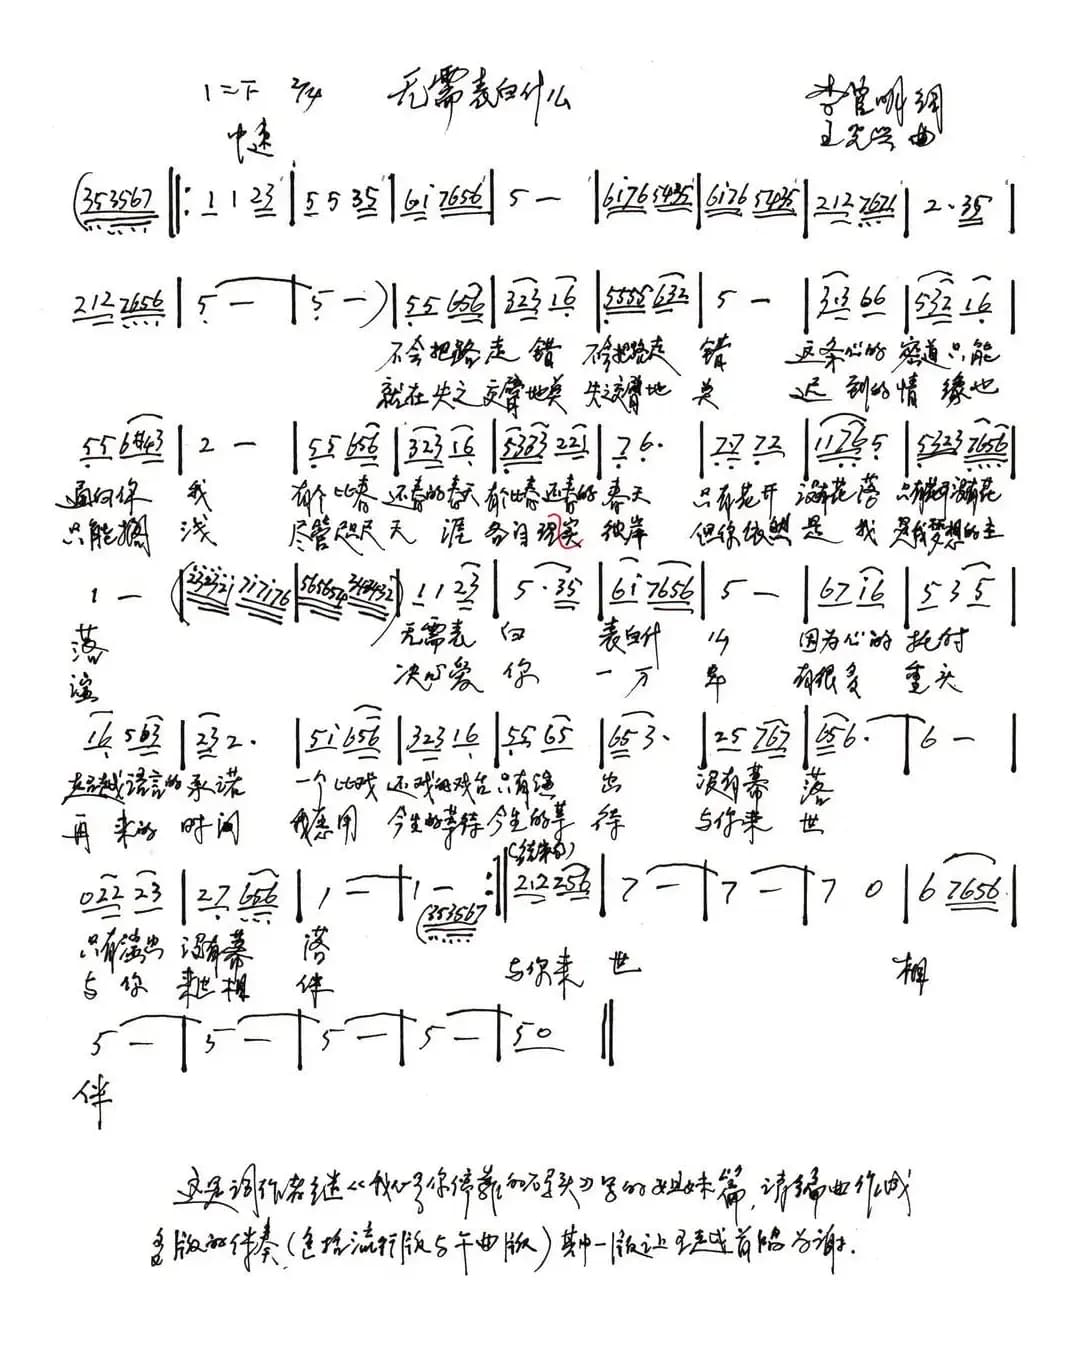 1=F 2/4 无需表白什么 李 明 词
中速 王 兴 曲
(353567 ‖: 1 1 23 | 5 5 35 | 6i 7656 | 5 - | 6i76 5435 | 6i76 5435 | 212 7671 | 2· 35 |
212 7656 | 5 - | 5 - ) | 55 656 | 323 16 | 5555 632 | 5 - | 3·3 66 | 532 16 |
不会把路走 错 不会把路走 错 这条心的 密道只能
就在失之 交臂地莫 失之交臂地 莫 迟 到的情 缘也
55 6#43 | 2 - | 55 656 | 323 16 | 5383 221 | 7 6· | 77 72 | 1176 5 | 5323 7656 |
通向你 我 有个比春 还春的春天 有个比春还春的 春天 只有花开 没有花落 只有花开没有花
只能搁 浅 尽管咫尺 天 涯 各自 彼岸 但你依然 是 我 是我梦想的主
1 - ( 23232i 7i7i76 | 565654 343432 ) | 1 1 23 | 5· 35 | 6i 7656 | 5 - | 67 i6 | 5 3 5 |
落 无需表 白 表白什 么 因为心的 托付
演 决心爱 你 一 万 年 有很多 重头
i6 563 | 23 2· | 5i 656 | 323 16 | 55 65 | 65 3· | 25 767 | 65 6· | 6 - |
超越语言的 承诺 一个比戏 还戏的戏台 只有演 出 没有幕 落
再 来的 时间 我愿用 今生的等待 今生的等 待 与你来 世
(结束句)
022 23 | 27 656 | 1 - | 1 - (353567 :‖ 212 256 | 7 - | 7 - | 7 0 | 6 7656 |
只有演出 没有幕 落
与 你 来世相 伴 与你来 世 相
5 - | 5 - | 5 - | 5 - | 50 ‖
伴
这是词作者继《我心 你停 的码头》写的姐妹篇，请编曲作成
多版的伴奏(包括流行版与 曲版)其中一版让王 越首唱为谢.